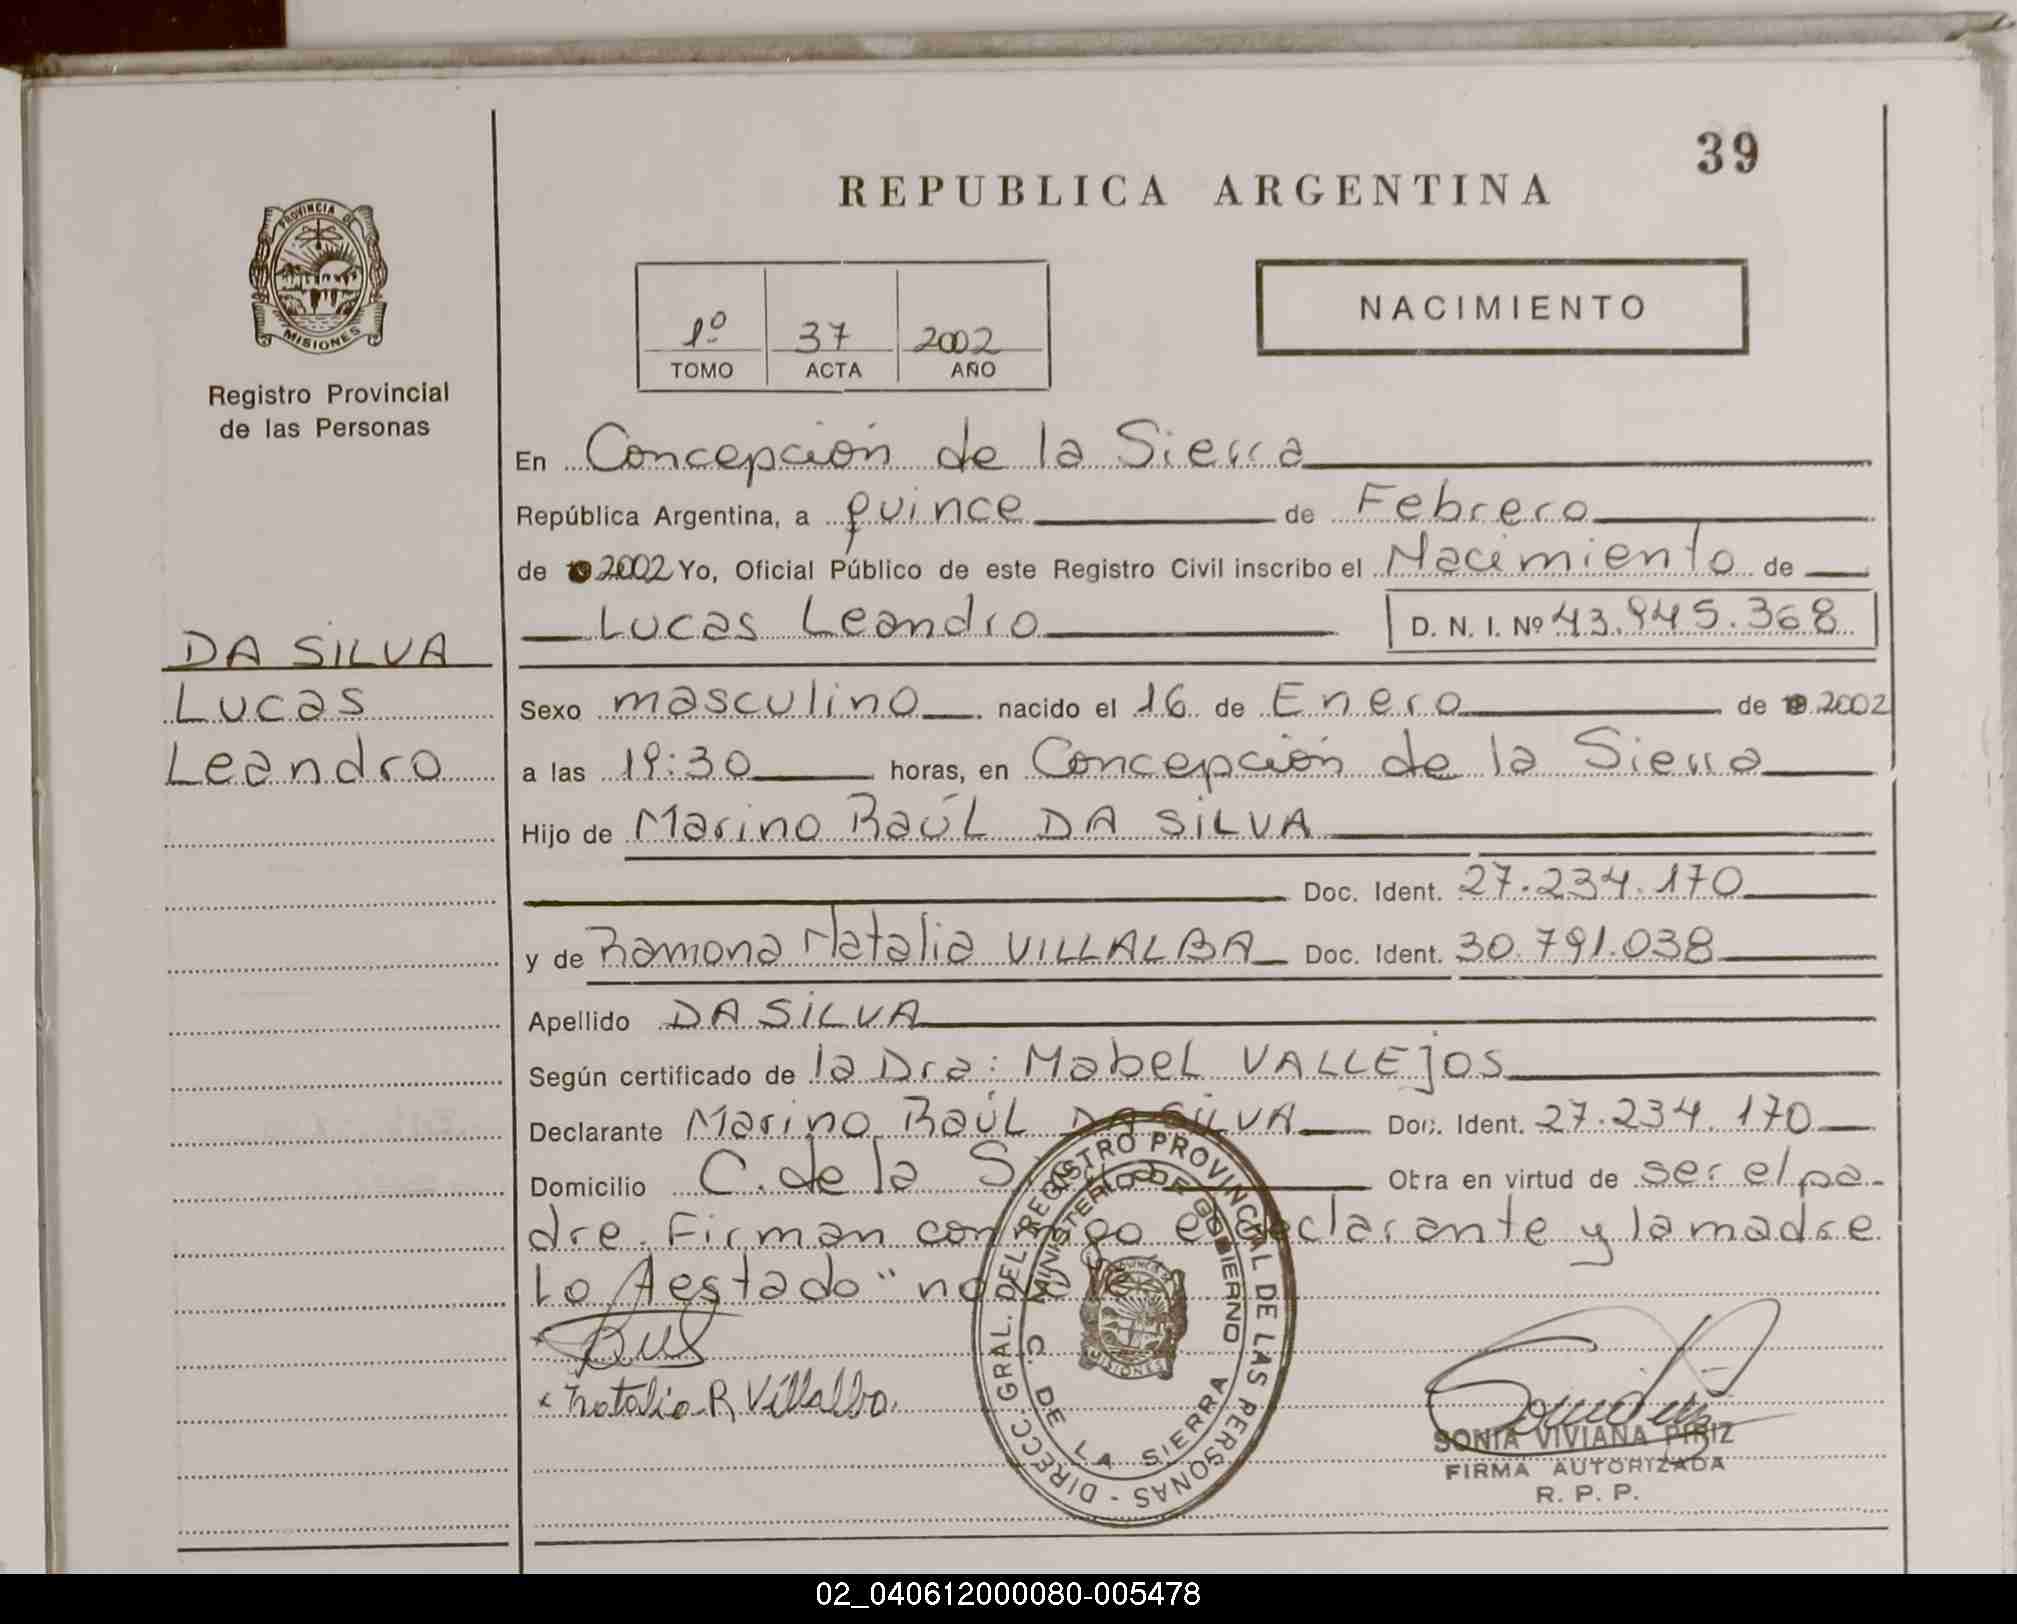 39
REPUBLICA ARGENTINA
PROVINCIA DE
MISIONES
Registro Provincial
de las Personas
1º 37 2002
TOMO ACTA AÑO
NACIMIENTO
En Concepción de la Sierra
República Argentina, a quince de Febrero
de 2002 Yo, Oficial Público de este Registro Civil inscribo el Nacimiento de
Lucas Leandro D. N. I. Nº 43.945.368
DA SILVA
Lucas
Leandro
Sexo masculino nacido el 16 de Enero de 2002
a las 19:30 horas, en Concepción de la Sierra
Hijo de Marino Raúl DA SILVA
Doc. Ident. 27.234.170
y de Ramona Natalia VILLALBA Doc. Ident. 30.791.038
Apellido DA SILVA
Según certificado de la Dra: Mabel VALLEJOS
Declarante Marino Raúl DA SILVA Doc. Ident. 27.234.170
Domicilio C. de la Obra en virtud de ser el pa-
dre. Firman conmigo el declarante y la madre
Lo Aestado "no
Natalia R Villalba.
DIRECC. GRAL. DEL REGISTRO PROVINCIAL DE LAS PERSONAS -
MINISTERIO DE GOBIERNO
C. DE LA SIERRA
MISIONES
SONIA VIVIANA PIRIZ
FIRMA AUTORIZADA
R. P. P.
02_040612000080-005478